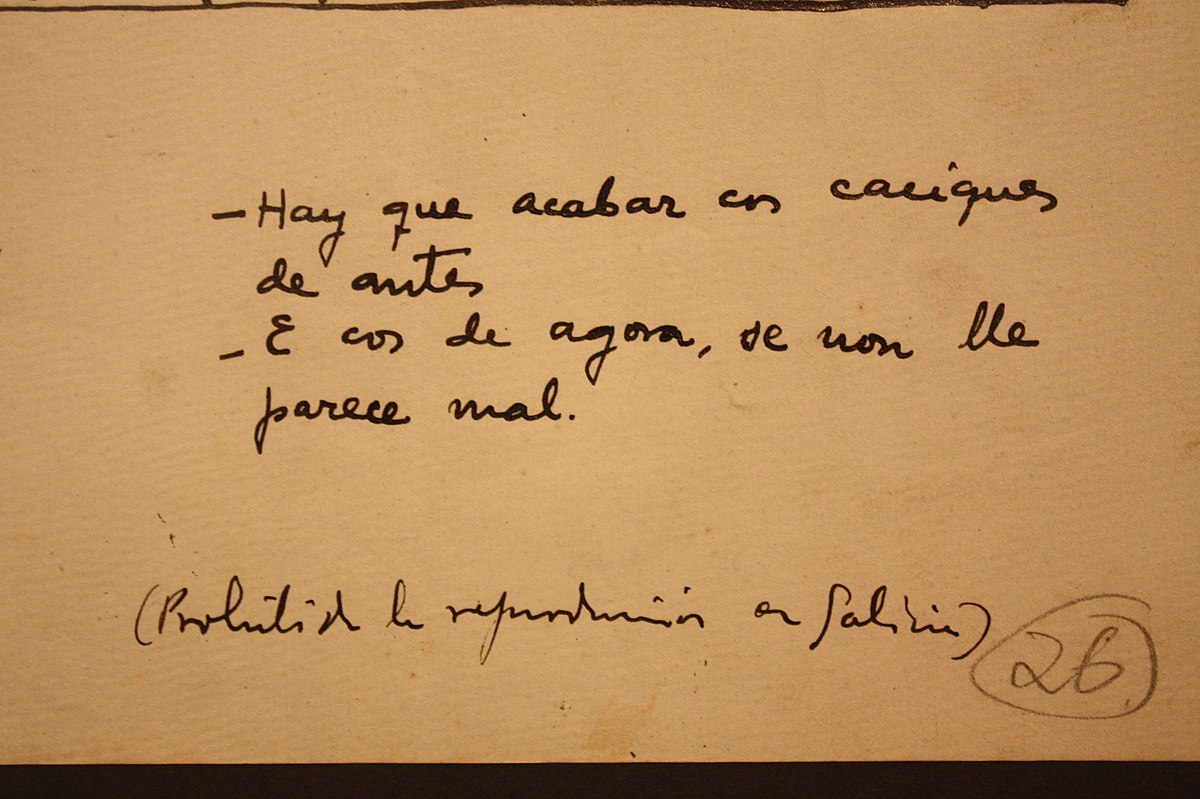 - Hay que acabar cos caciques
de antes
- E cos de agora, se non lle
parece mal.
(Prohibida la reproducción en Galicia)
26